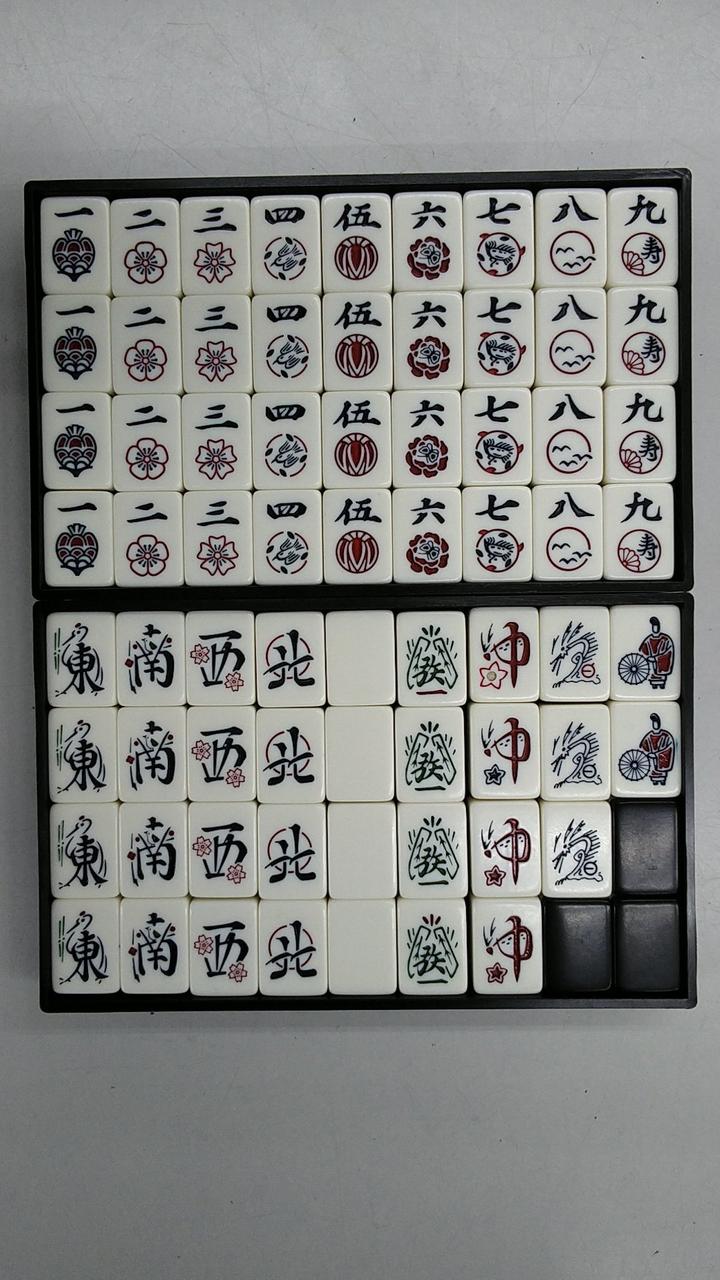 一 二 三 四 伍 六 七 八 九
寿
一 二 三 四 伍 六 七 八 九
寿
一 二 三 四 伍 六 七 八 九
寿
一 二 三 四 伍 六 七 八 九
寿
東 南 西 北 發 中
東 南 西 北 發 中
東 南 西 北 發 中
東 南 西 北 發 中